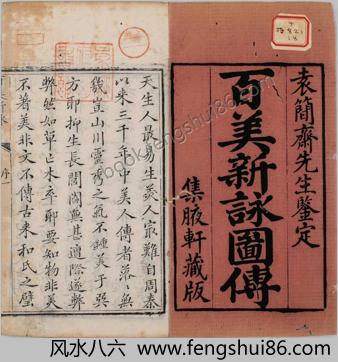 袁簡齋先生鑒定
百美新詠圖傳
集腋軒藏版
天生人㝡易生美人㝡難自周秦
以来三千年中美人傳者落落無
幾豈山川靈秀之氣不鍾美于巽
方耶抑生長閨閣無甚遭際遂弊
弊然如草亡木卒耶要知物非美
不著美非文不傳古来和氏之璧
序一
821
18
风水八六 www.fengshui86.com